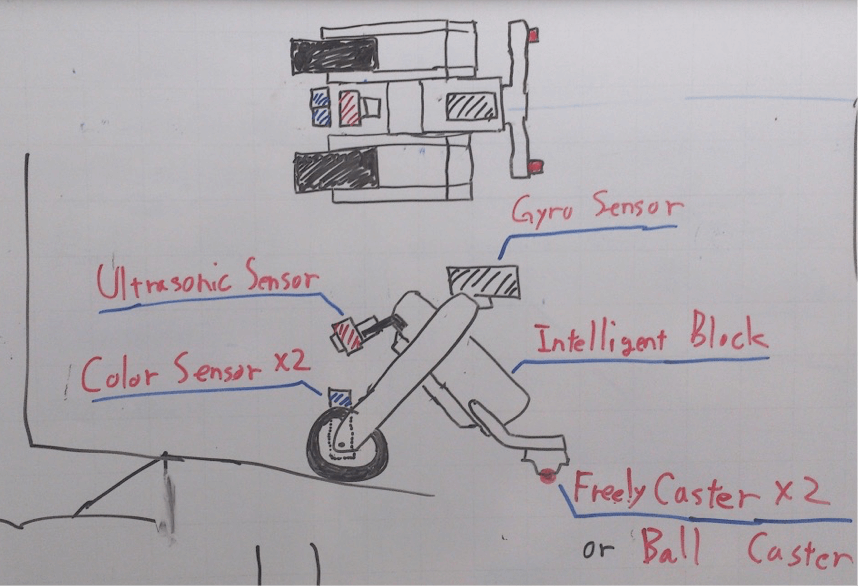 Gyro Sensor
Ultrasonic Sensor
Intelligent Block
Color Sensor X2
Freely Caster X2
or Ball Caster